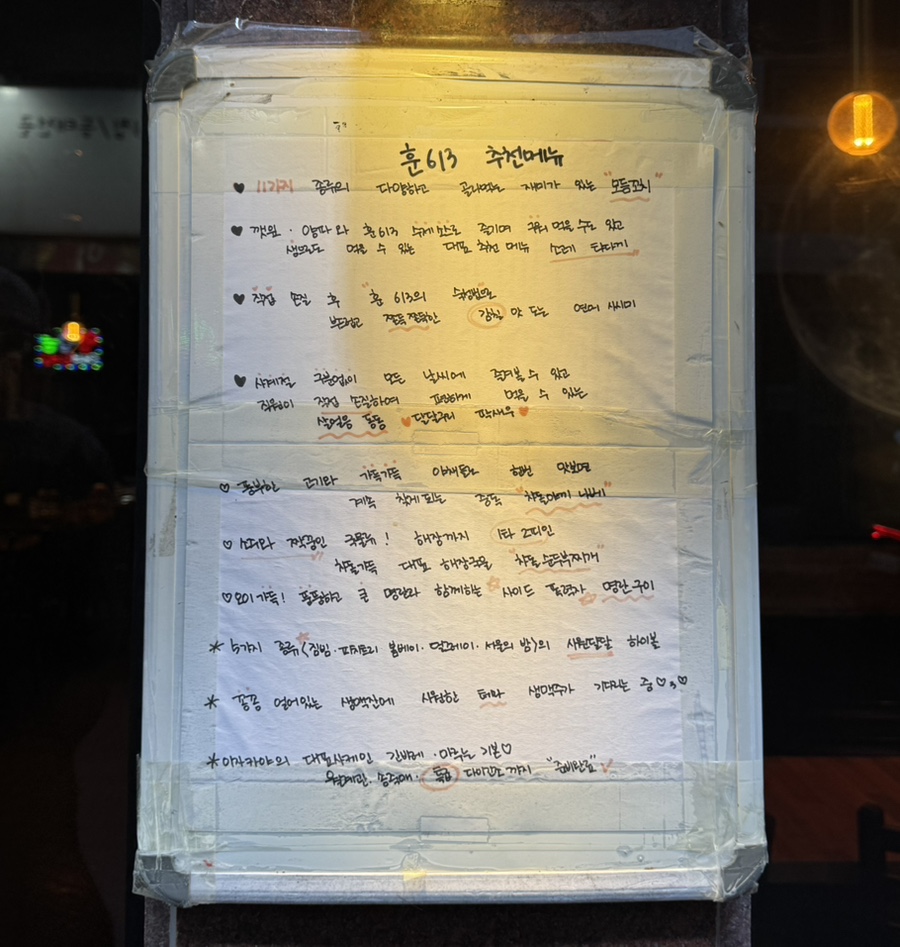 훈613 추천메뉴
♥ 11가지 종류의 다양하고 골라먹는 재미가 있는 "모듬꼬치"
♥ 깻잎 · 양파와 훈613 수제소스로 즐기며 구워 먹을 수도 있고
생으로도 먹을 수 있는 대표 추천 메뉴 소고기 타다끼"
♥ 직접 손질 후 "훈 613의 숙성법으로
부드럽고 쫄득쫄득한 감칠맛 도는 연어 사시미
♥ 사계절 구분없이 모든 날씨에 즐겨볼 수 있고
직원이 직접 손질하여 편하게 먹을 수 있는
살얼음 동동 ♥ 달달구리 딱새우 ♥
♡ 풍부한 고기와 가득가득 야채들은 한번 맛보면
계속 찾게되는 중독 "차돌모찌 나베"
♡ 소주와 짝꿍인 국물류! 해장까지 1타 2피인
차돌가득 대표 해장국물 "차돌 순두부찌개"
♡ 오이가득! 통통하고 큰 명란과 함께하는 사이드 끝판왕 명란구이
* 4가지 종류<짐빔·피치트리 봄베이·얼그레이·서울의 밤>의 시원달달 하이볼
* 꽁꽁 얼어있는 생맥잔에 시원한 테라 생맥주가 기다리는 중♡3♡
* 이자카야의 대표사케인 간바레·마루는 기본♡
월계관·송죽매· 다이긴조까지 "준비완료"✓